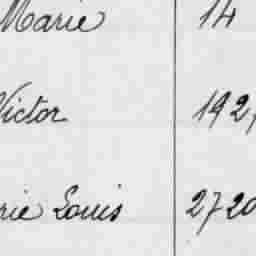 Marie 14
Victor 192
rie Louis 2720